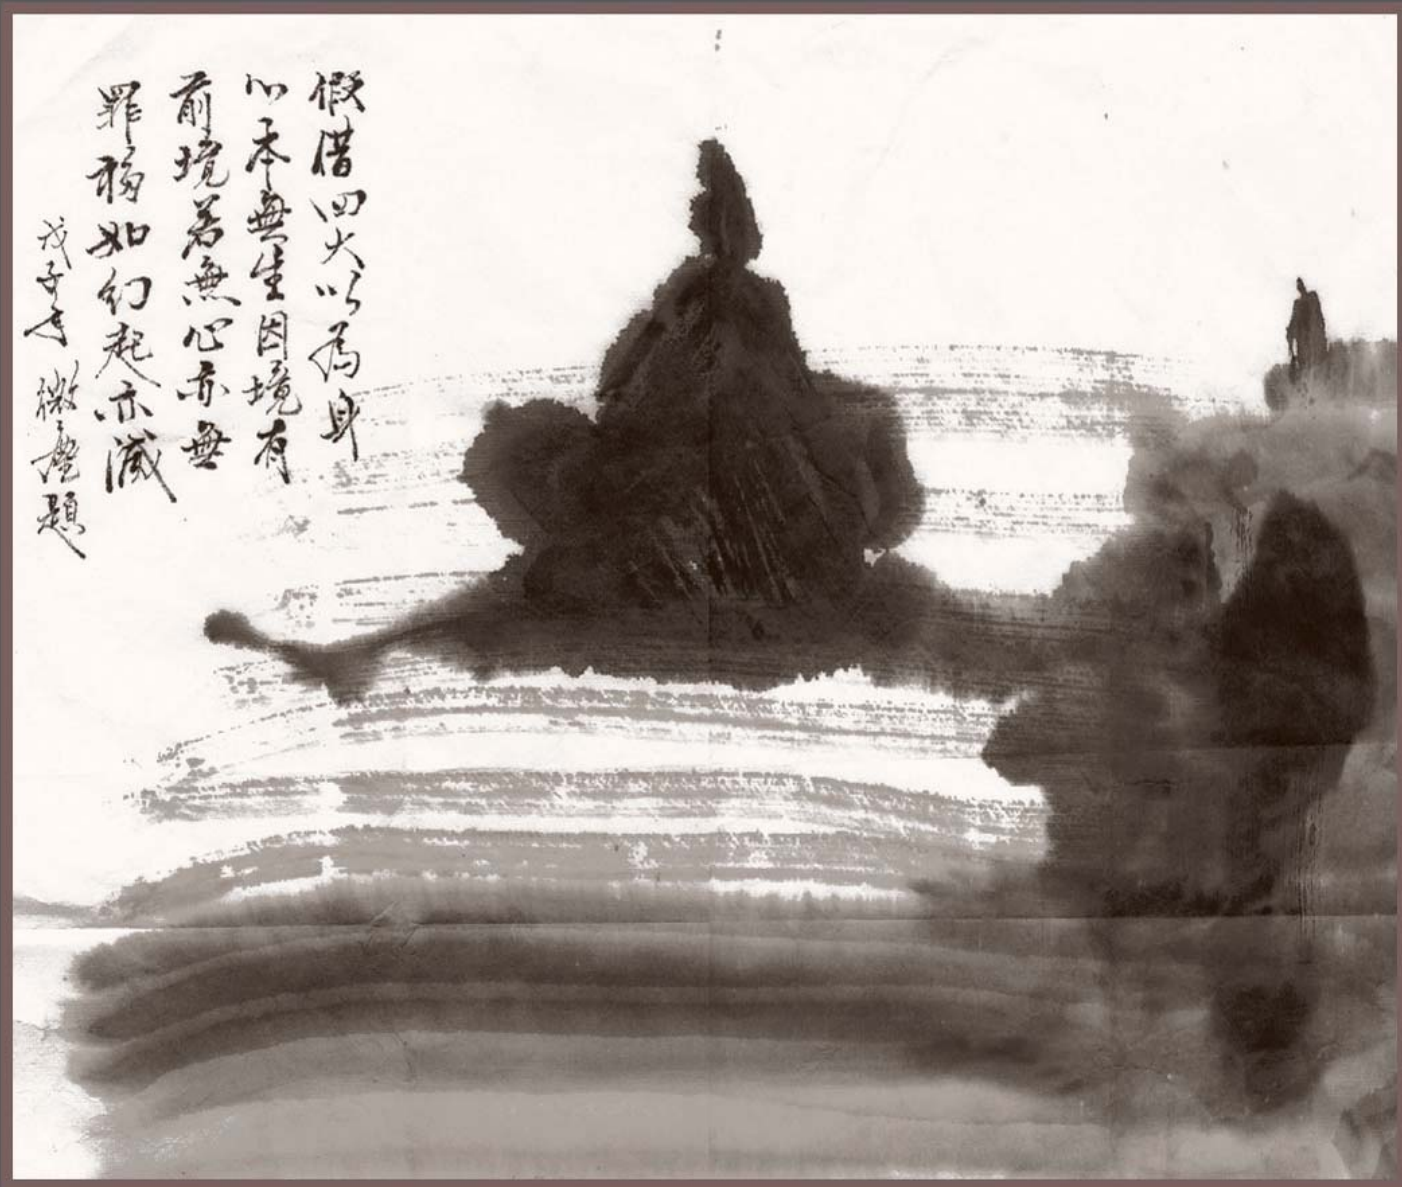 假借四大以為身
心本無生因境有
前境若無心亦無
罪福如幻起亦滅
戊子年 微塵題